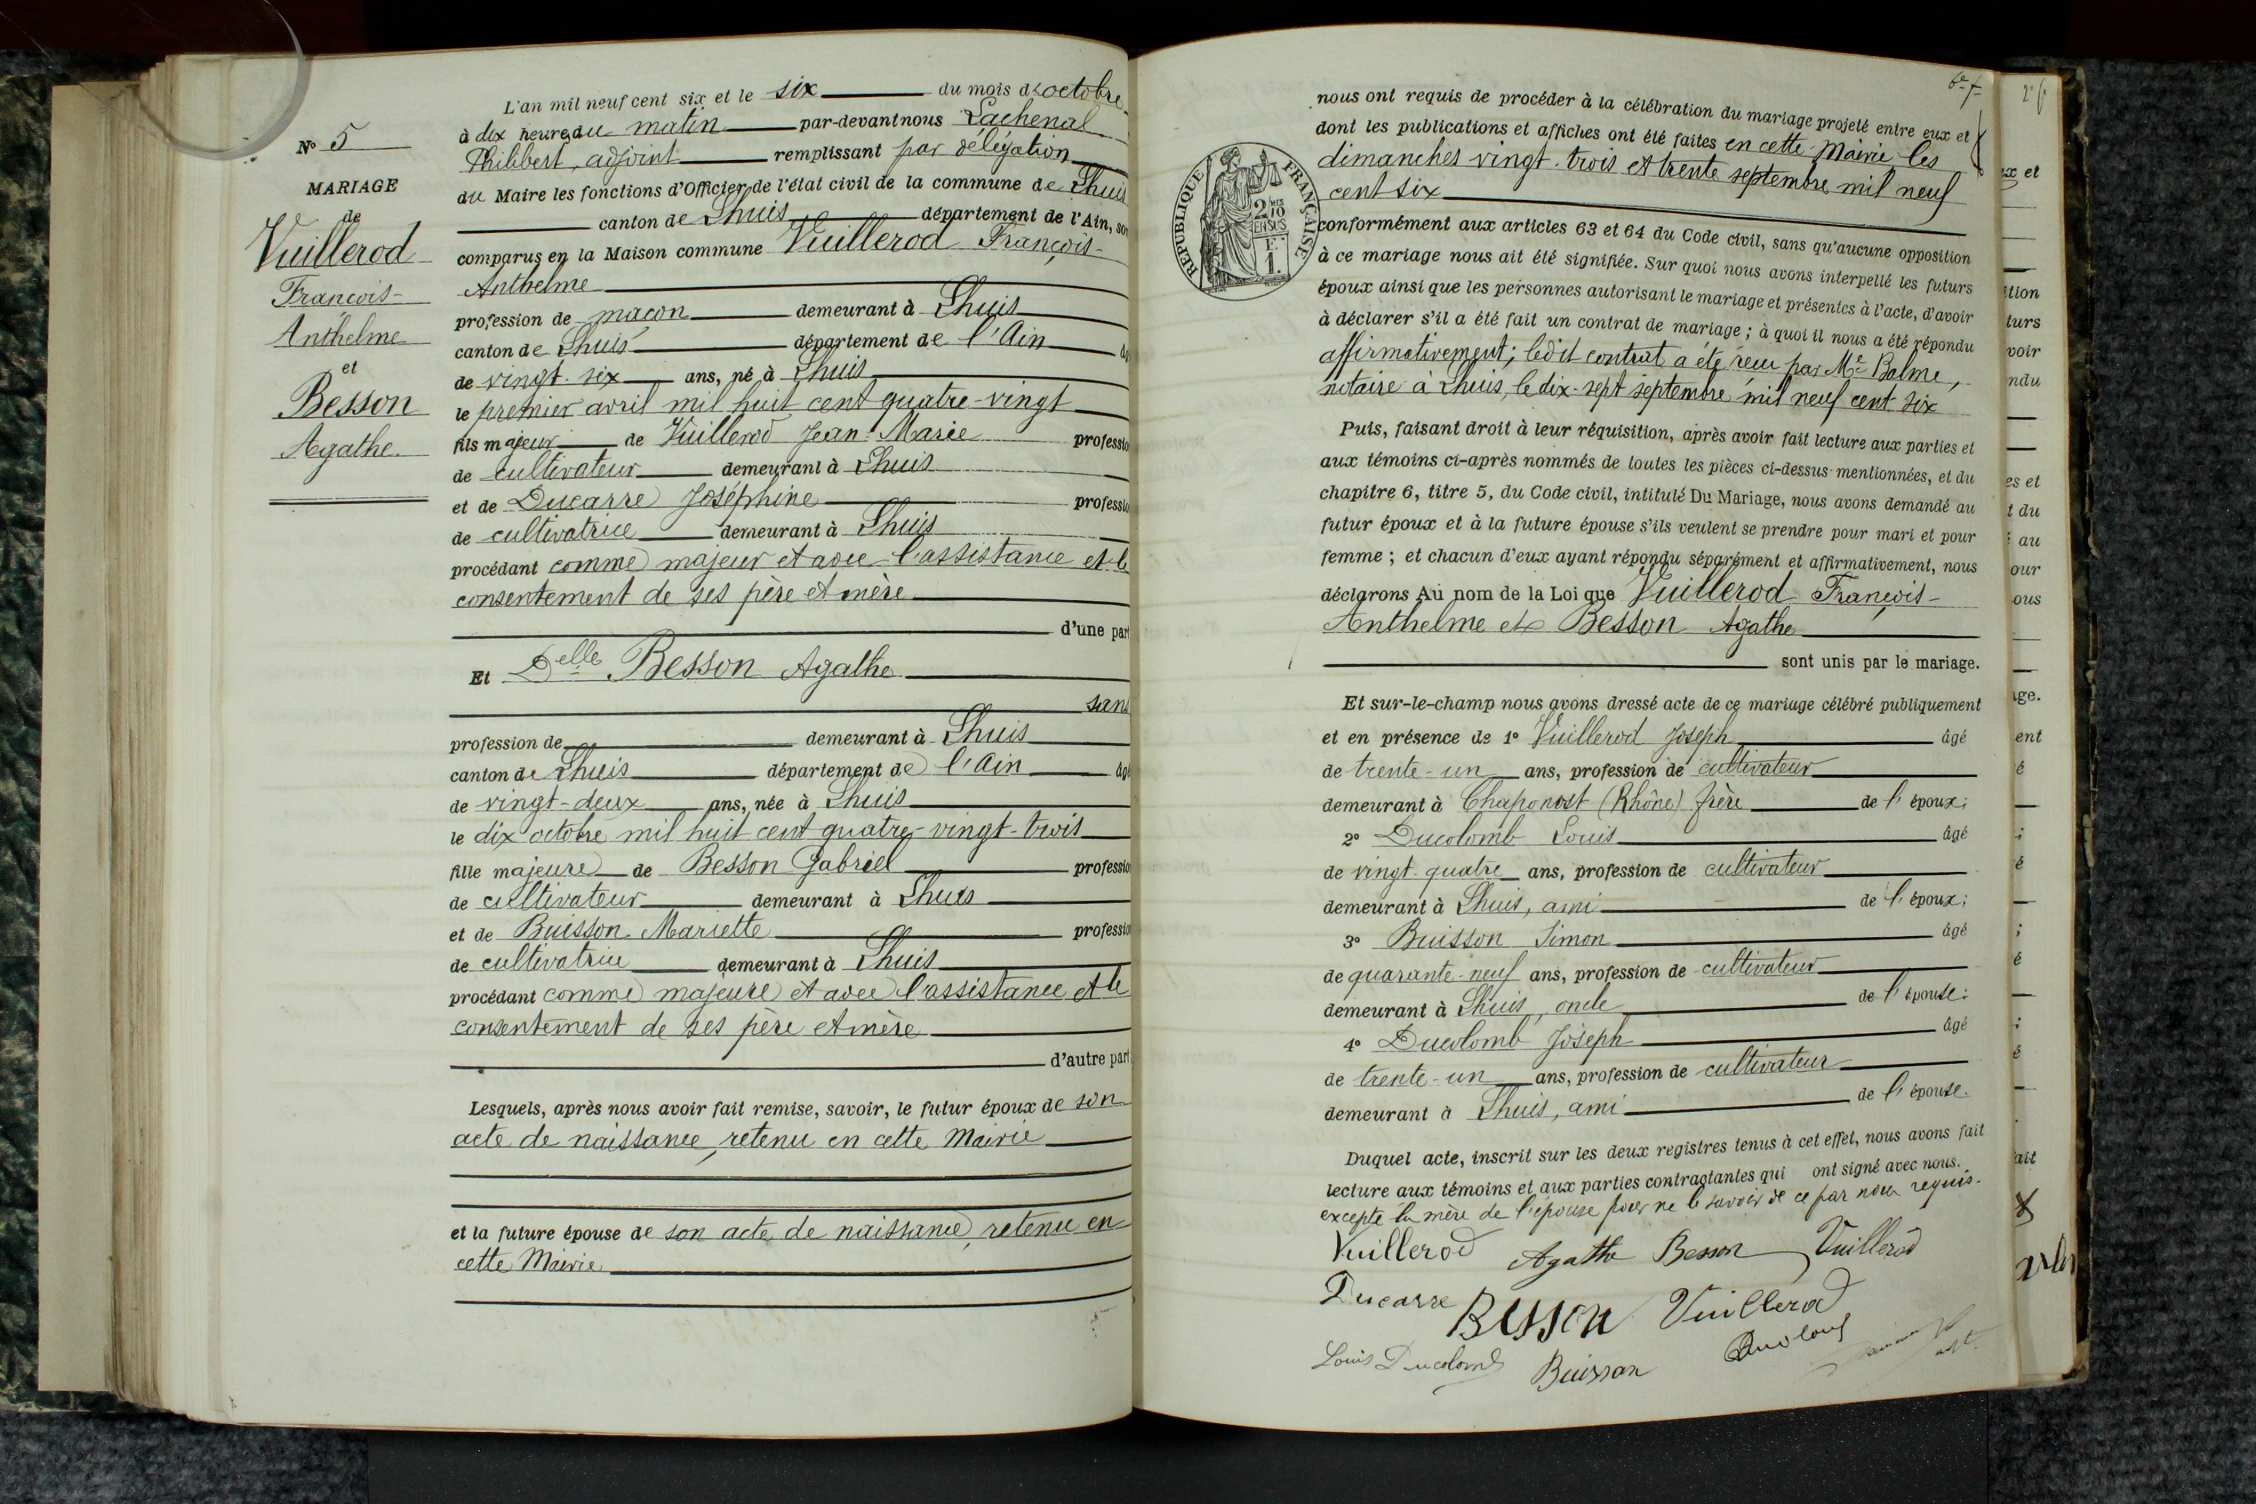 L'an mil neuf cent six et le six du mois de octobre
à dix heures du matin par-devant nous Lachenal
Philibert, adjoint remplissant par délégation
du Maire les fonctions d'Officier de l'état civil de la commune de Lhuis
canton de Lhuis département de l'Ain, son
comparus en la Maison commune Vuillerod François-
Anthelme
profession de maçon demeurant à Lhuis
canton de Lhuis département de l'Ain âg
de vingt-six ans, né à Lhuis
le premier avril mil huit cent quatre-vingt
fils majeur de Vuillerod Jean-Marie professio
de cultivateur demeurant à Lhuis
et de Ducarre Joséphine professio
de cultivatrice demeurant à Lhuis
procédant comme majeur et avec l'assistance et le
consentement de ses père et mère
d'une part
Et Delle Besson Agathe
sans
profession de demeurant à Lhuis
canton de Lhuis département de l'Ain âgé
de vingt-deux ans, née à Lhuis
le dix octobre mil huit cent quatre-vingt-trois
fille majeure de Besson Gabriel profession
de cultivateur demeurant à Lhuis
et de Buisson Mariette professio
de cultivatrice demeurant à Lhuis
procédant comme majeure et avec l'assistance et le
consentement de ses père et mère
d'autre part
Lesquels, après nous avoir fait remise, savoir, le futur époux de son
acte de naissance, retenu en cette Mairie
et la future épouse de son acte de naissance, retenu en
cette Mairie
No 5
MARIAGE
de
Vuillerod
François-
Anthelme
et
Besson
Agathe
nous ont requis de procéder à la célébration du mariage projeté entre eux et
dont les publications et affiches ont été faites en cette Mairie les
dimanches vingt-trois et trente septembre mil neuf
cent six
conformément aux articles 63 et 64 du Code civil, sans qu'aucune opposition
à ce mariage nous ait été signifiée. Sur quoi nous avons interpellé les futurs
époux ainsi que les personnes autorisant le mariage et présentes à l'acte, d'avoir
à déclarer s'il a été fait un contrat de mariage ; à quoi il nous a été répondu
affirmativement; ledit contrat a été reçu par Me Balme,
notaire à Lhuis, le dix-sept septembre mil neuf cent six
Puis, faisant droit à leur réquisition, après avoir fait lecture aux parties et
aux témoins ci-après nommés de toutes les pièces ci-dessus mentionnées, et du
chapitre 6, titre 5, du Code civil, intitulé Du Mariage, nous avons demandé au
futur époux et à la future épouse s'ils veulent se prendre pour mari et pour
femme ; et chacun d'eux ayant répondu séparément et affirmativement, nous
déclarons Au nom de la Loi que Vuillerod François-
Anthelme et Besson Agathe
sont unis par le mariage.
Et sur-le-champ nous avons dressé acte de ce mariage célébré publiquement
et en présence de 1º Vuillerod Joseph âgé
de trente-un ans, profession de cultivateur
demeurant à Chaponost (Rhône) frère de l'époux;
2º Ducolomb Louis âgé
de vingt-quatre ans, profession de cultivateur
demeurant à Lhuis, ami de l'époux;
3º Buisson Simon âgé
de quarante-neuf ans, profession de cultivateur
demeurant à Lhuis, oncle de l'épouse;
4º Ducolomb Joseph âgé
de trente-un ans, profession de cultivateur
demeurant à Lhuis, ami de l'épouse.
Duquel acte, inscrit sur les deux registres tenus à cet effet, nous avons fait
lecture aux témoins et aux parties contractantes qui ont signé avec nous.
excepté la mère de l'épouse pour ne le savoir de ce par nous requis.
Vuillerod Agathe Besson Vuillerod
Ducarre Besson Vuillerod
Louis Ducolomb Buisson
REPUBLIQUE FRANÇAISE
2/10
EN SUS
F.
1.
ex et
ition
turs
voir
ndu
es et
t du
au
our
ous
age.
ent
é
;
é
;
é
;
é
ait